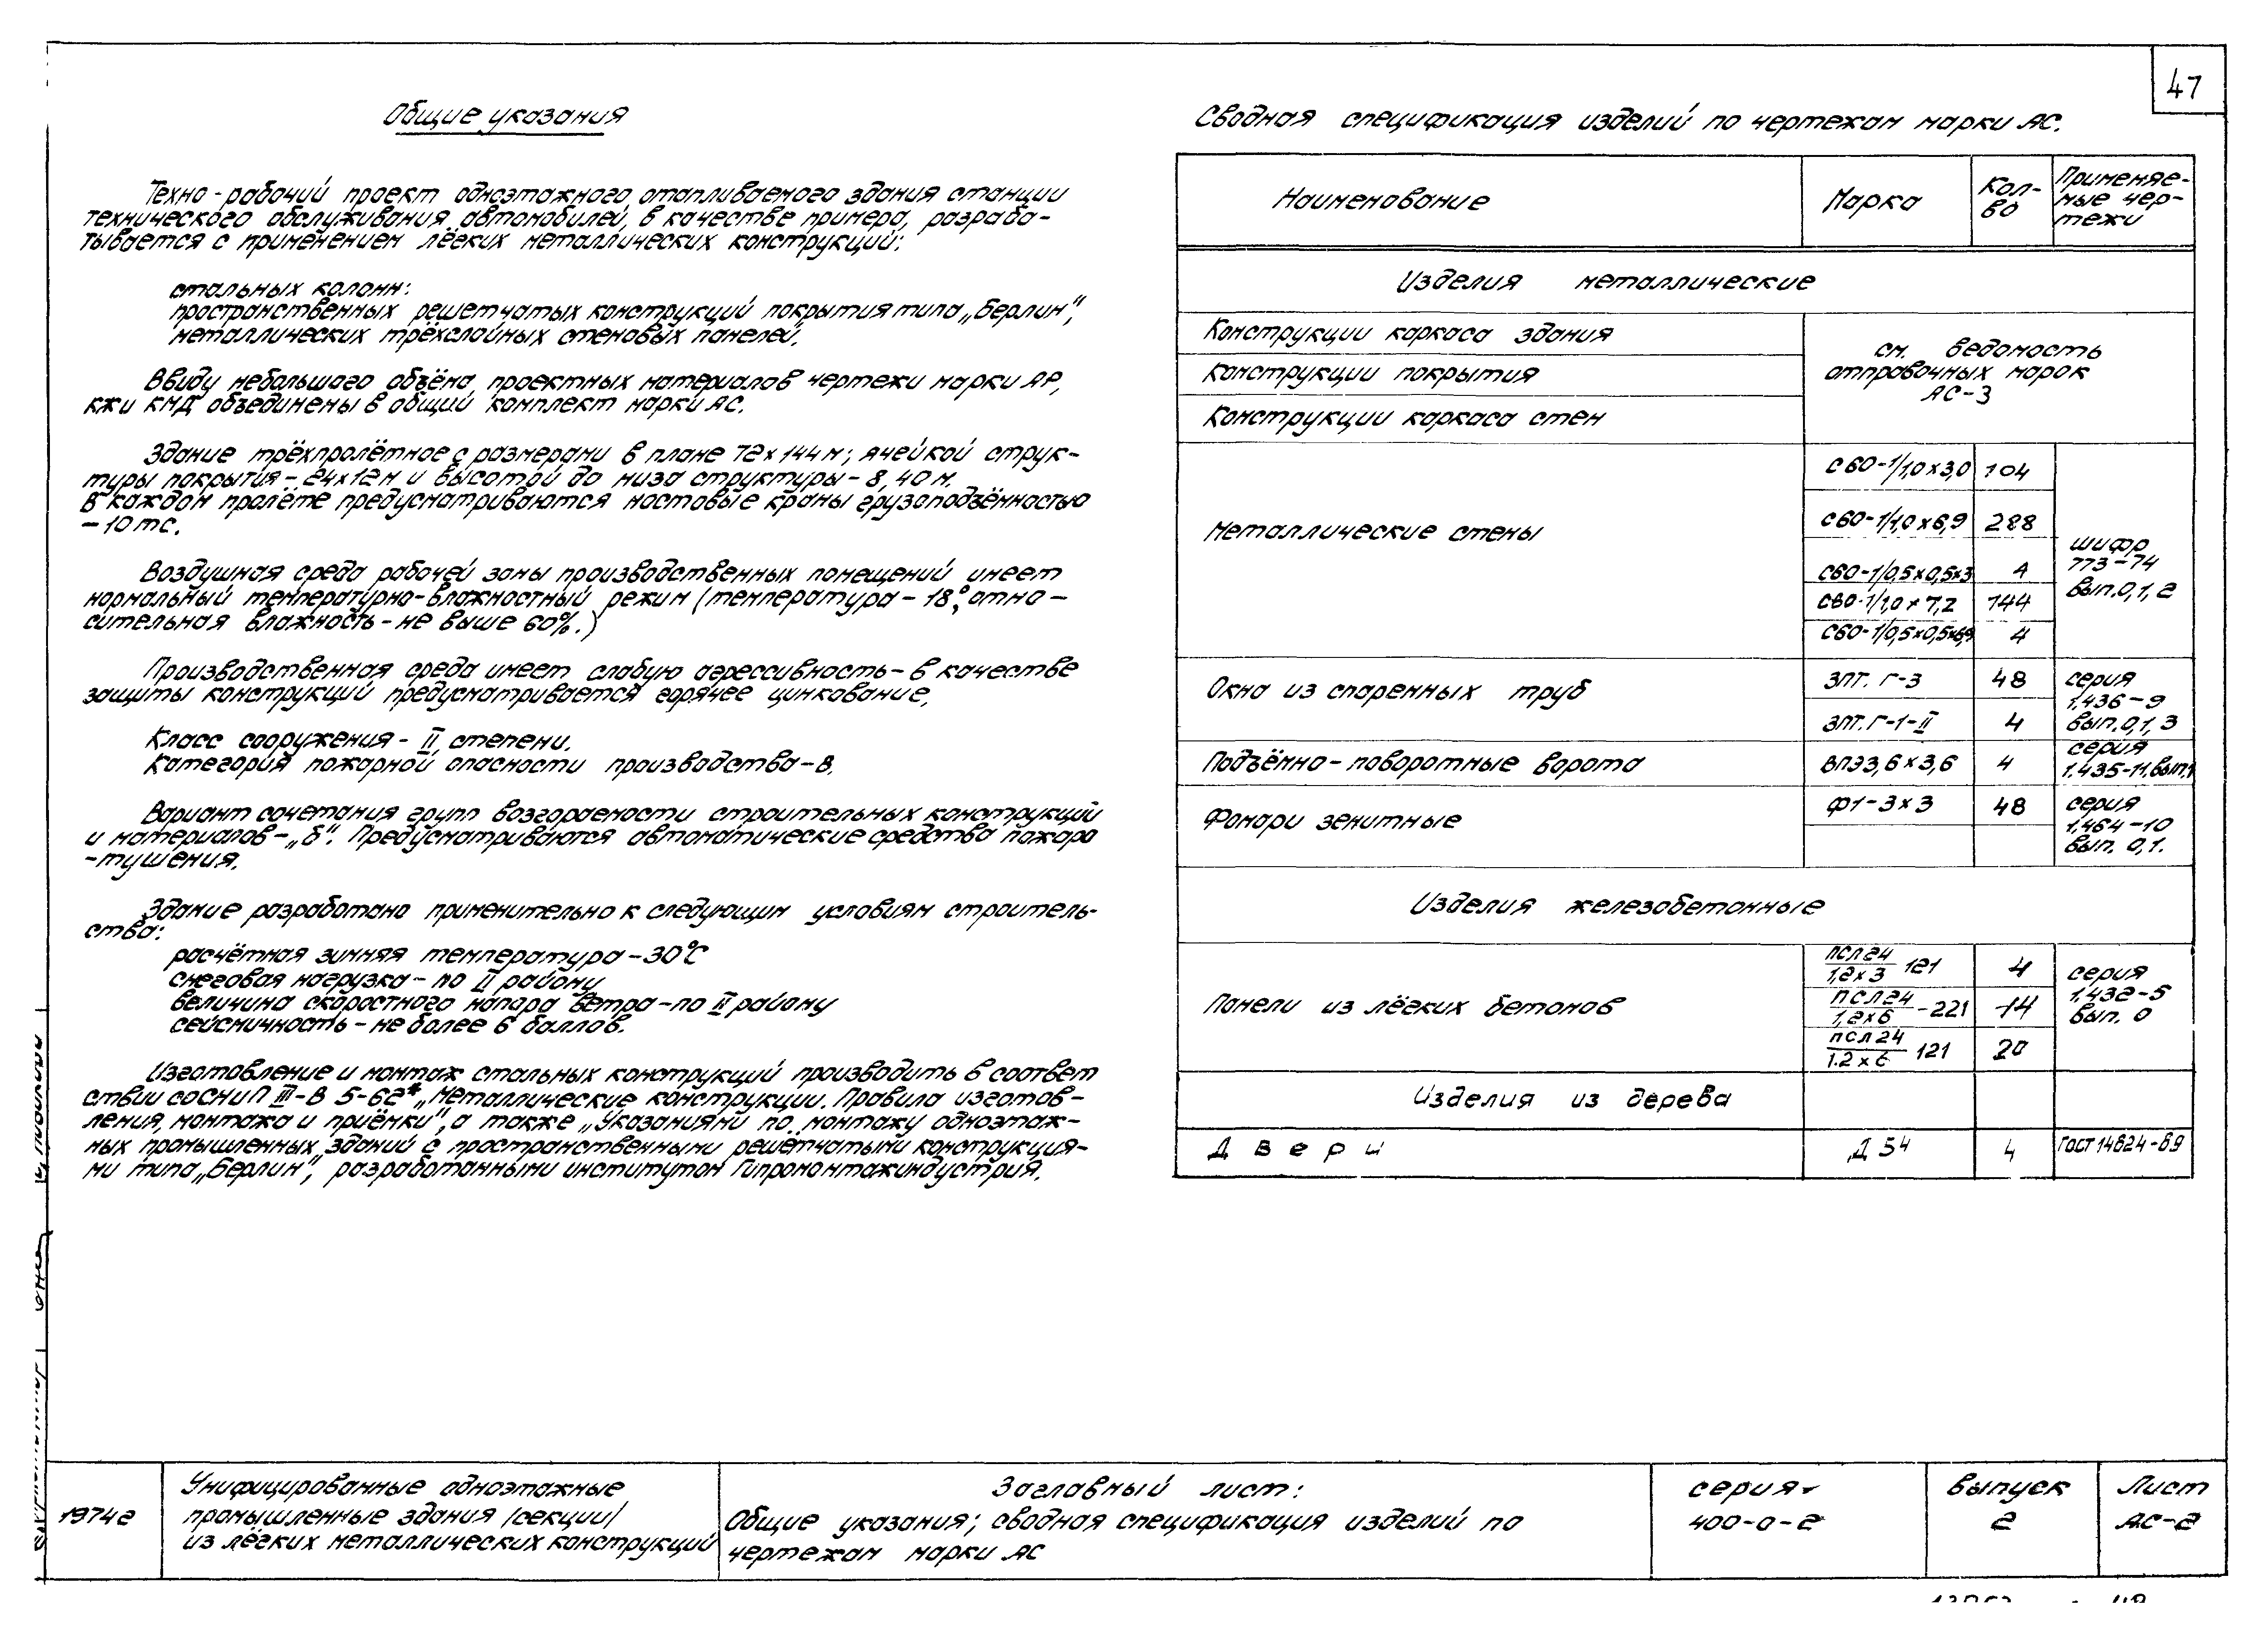 47
Общие указания
Техно-рабочий проект одноэтажного отапливаемого здания станции
технического обслуживания автомобилей, в качестве примера, разраба-
тывается с применением лёгких металлических конструкций:
стальных колонн:
пространственных решетчатых конструкций покрытия типа „Берлин",
металлических трёхслойных стеновых панелей.
Ввиду небольшого объёма проектных материалов чертежи марки АР,
КЖИ КМД объединены в общий комплект марки АС.
Здание трёхпролётное с размерами в плане 72х144м; ячейкой струк-
туры покрытия - 24х12м и высотой до низа структуры - 8,40м.
В каждом пролёте предусматриваются мостовые краны грузоподъёмностью
- 10тс.
Воздушная среда рабочей зоны производственных помещений имеет
нормальный температурно-влажностный режим (температура - 18°, отно-
сительная влажность - не выше 60%.)
Производственная среда имеет слабую агрессивность - в качестве
защиты конструкций предусматривается горячее цинкование.
Класс сооружения - II степени.
Категория пожарной опасности производства - В.
Вариант сочетания групп возгораемости строительных конструкций
и материалов - „б". Предусматриваются автоматические средства пожаро
-тушения.
Здание разработано применительно к следующим условиям строитель-
ства:
расчётная зимняя температура - 30°С
снеговая нагрузка - по II району
величина скоростного напора ветра - по II району
сейсмичность - не более 6 баллов.
Изготовление и монтаж стальных конструкций производить в соответ
ствии со СНиП III-В 5-62* „Металлические конструкции. Правила изготов-
ления, монтажа и приёмки", а также „Указаниями по монтажу одноэтаж-
ных промышленных зданий с пространственными решётчатыми конструкция-
ми типа „Берлин", разработанными институтом Гипромонтажиндустрия.
Сводная спецификация изделий по чертежам марки АС.
Наименование Марка Кол-во Применяе-мые чер-тежи
Изделия металлические
Конструкции каркаса здания
Конструкции покрытия
Конструкции каркаса стен
см. ведомость
отправочных марок
АС-3
Металлические стены
С60-1/1,0х3,0 104
С60-1/1,0х6,9 288
С60-1/0,5х0,5х3 4
С60-1/1,0х7,2 144
С60-1/0,5х0,5х6,9 4
шифр
773-74
Вып.0,1,2
Окна из спаренных труб
ЗПТ. Г-3 48
ЗПТ. Г-1-II 4
серия
1.436-9
вып.0,1,3
Подъёмно-поворотные ворота ВПЭ3,6х3,6 4 серия
1.435-11.вып.1
Фонари зенитные Ф1-3х3 48 серия
1.464-10
вып. 0,1.
Изделия железобетонные
Панели из лёгких бетонов
ПСЛ24/1,2х3 121 4
ПСЛ24/1,2х6 -221 14
ПСЛ24/1.2х6 121 20
серия
1.432-5
Вып. 0
Изделия из дерева
Двери Д 54 4 ГОСТ 14624-69
1974г
Унифицированные одноэтажные
промышленные здания /секции/
из лёгких металлических конструкций
Заглавный лист:
Общие указания; сводная спецификация изделий по
чертежам марки АС
серия
400-0-2
Выпуск
2
Лист
АС-2